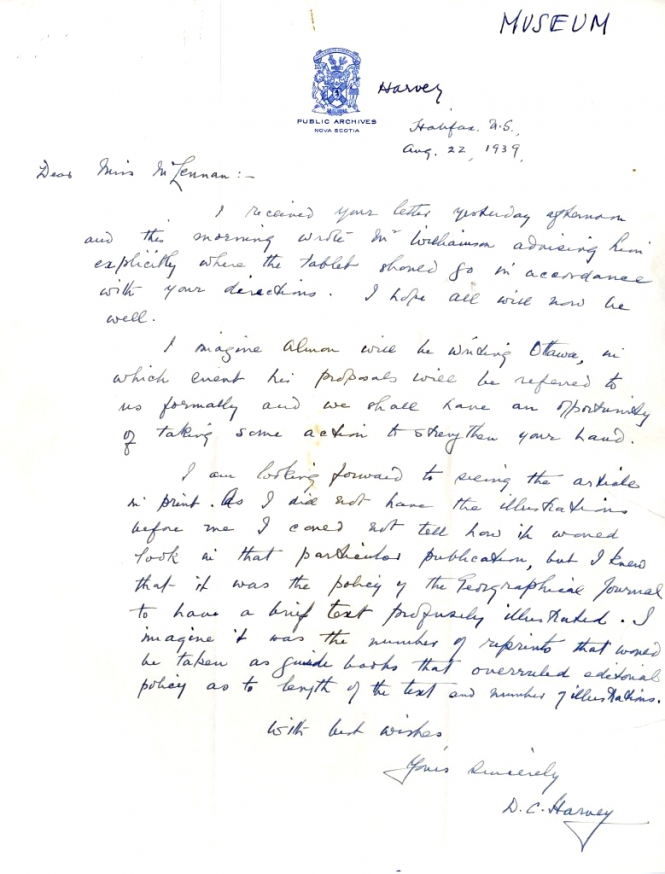 MUSEUM
Harvey
PUBLIC ARCHIVES
NOVA SCOTIA
Halifax. N.S.,
Aug. 22, 1939,
Dear Miss McLennan:-
I received your letter yesterday afternoon
and this morning wrote Mr Williamson advising him
explicitly where the tablet should go in accordance
with your directions. I hope all will now be
well.
I imagine Almon will be writing Ottawa, in
which event his proposals will be referred to
us formally and we shall have an opportunity
of taking some action to strengthen your hand.
I am looking forward to seeing the article
in print. As I did not have the illustrations
before me I could not tell how it would
look in that particular publication, but I knew
that it was the policy of the Geographical Journal
to have a brief text profusely illustrated. I
imagine it was the number of reprints that would
be taken as guide books that overruled editorial
policy as to length of the text and number of illustrations.
With best wishes
Yours Sincerely
D. C. Harvey